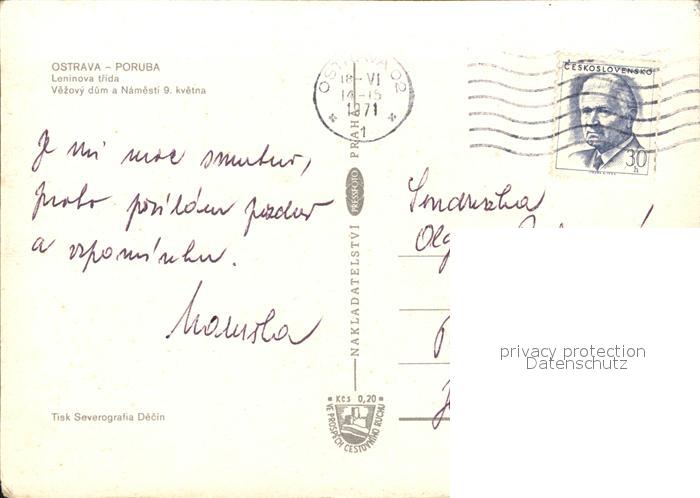 OSTRAVA - PORUBA
Leninova třída
Věžový dům a Náměstí 9. května
OSTRAVA 02
18-VI
14-15
1971
1
ČESKOSLOVENSKO
30
h
Je mi moc smutno,
proto posílám pozdrav
a vzpomínku.
Maruška
Soudružka
NAKLADATELSTVÍ PRESSFOTO PRAHA
privacy protection
Datenschutz
Kčs 0,20
VE PROSPĚCH CESTOVNÍHO RUCHU
Tisk Severografia Děčín